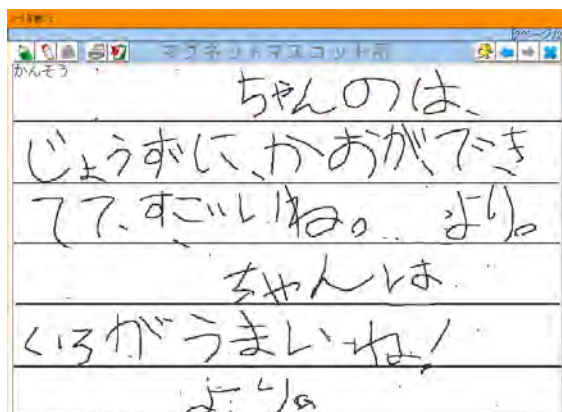 マグネットマスコット
かんそう
ちゃんのは、
じょうずに、かおが、でき
てて、すごいしいね。 より。
ちゃんは
くろがうまいね!
より。